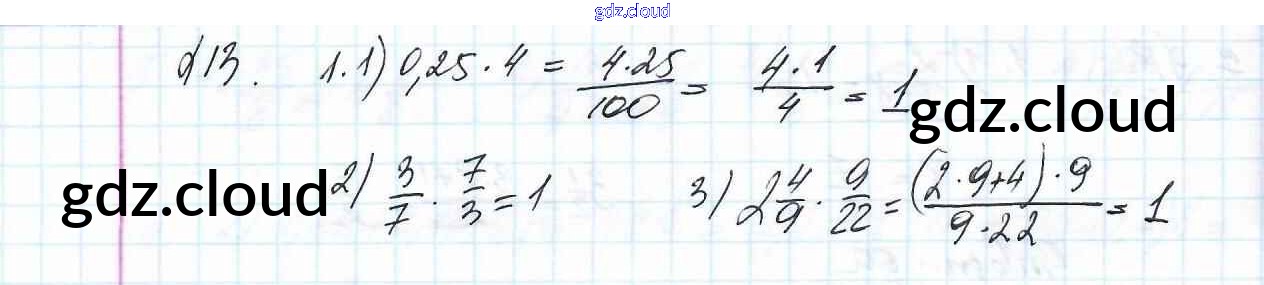 gdz.cloud
d13. 1.1) 0,25 · 4 = 4·25/100 = 4·1/4 = 1
gdz.cloud
gdz.cloud
2) 3/7 · 7/3 = 1 3) 2 4/9 · 9/22 = (2·9+4)·9/9·22 = 1